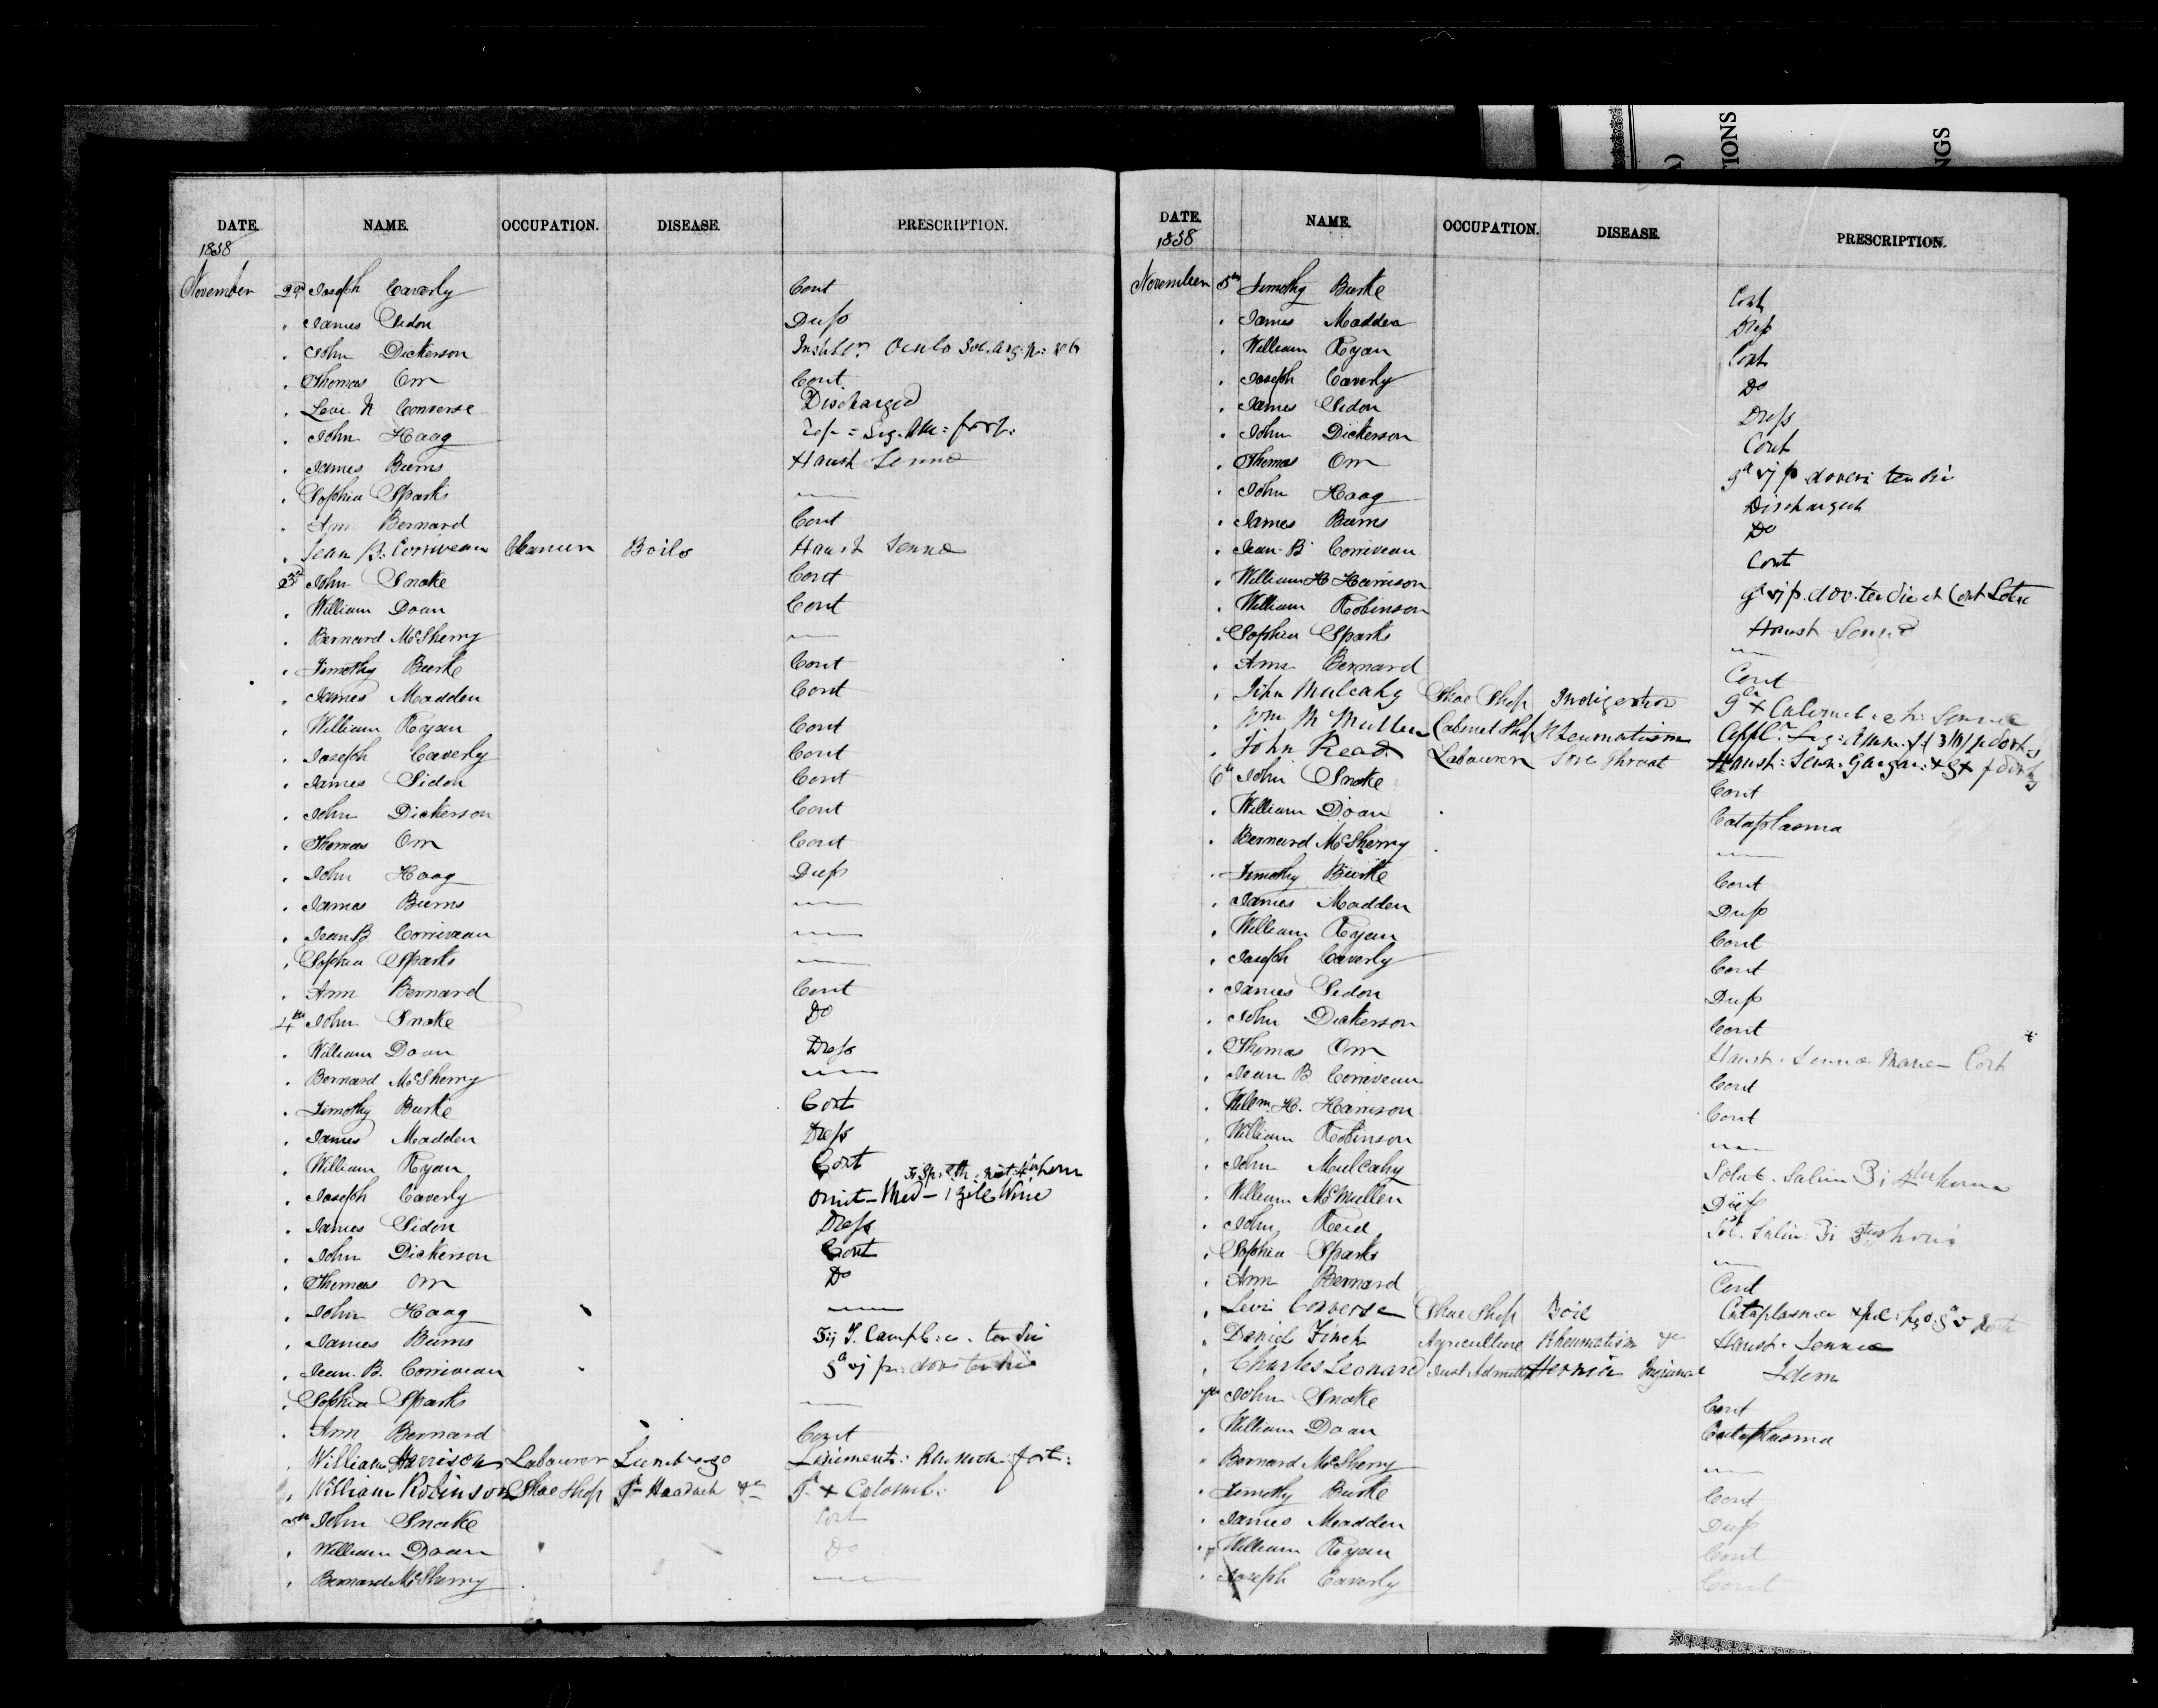 TIONS
NGS
DATE. NAME. OCCUPATION. DISEASE. PRESCRIPTION.
1858
November 2nd Joseph Caverly Cont
James Sidon Dress
John Dickerson Oculo
Thomas Orr Cont
Levi N Converse Discharged
John Haag
James Burns Haust Senna
Sophia Sparks —
Ann Bernard Cont
Jean B. Corriveau Boils Haust Senna
3rd John Snake Cont
William Doan Cont
Bernard McSherry —
Timothy Burke Cont
James Madden Cont
William Ryan Cont
Joseph Caverly Cont
James Sidon Cont
John Dickerson Cont
Thomas Orr Cont
John Haag Dress
James Burns —
Jean B. Corriveau —
Sophia Sparks —
Ann Bernard Cont
4th John Snake Do
William Doan Dress
Bernard McSherry —
Timothy Burke Cont
James Madden Dress
William Ryan Cont
Joseph Caverly Omit Med — 1 Gill Wine
James Sidon Dress
John Dickerson Cont
Thomas Orr Do
John Haag —
James Burns
Jean B. Corriveau
Sophia Sparks —
Ann Bernard Cont
William Harrison Labourer Lumbago
William Robinson Shoe Shop
5th John Snake Cont
William Doan Do
Bernard McSherry —
DATE. NAME. OCCUPATION. DISEASE. PRESCRIPTION.
1858
November 5th Timothy Burke Cont
James Madden Dress
William Ryan Cont
Joseph Caverly Do
James Sidon Dress
John Dickerson Cont
Thomas Orr
John Haag Discharged
James Burns Do
Jean B Corriveau Cont
William H Harrison
William Robinson Haust Senna
Sophia Sparks —
Ann Bernard Cont
John Mulcahy Shoe Shop Indigestion
Wm McMullen Cabinet Shop Rheumatism
John Read Labourer Sore Throat
6th John Snake Cont
William Doan Cataplasma
Bernard McSherry —
Timothy Burke Cont
James Madden Dress
William Ryan Cont
Joseph Caverly Cont
James Sidon Dress
John Dickerson Cont
Thomas Orr Haust Senna Mane Cont
Jean B Corriveau Cont
Willm. H. Harrison Cont
William Robinson —
John Mulcahy
William McMullen
John Reid
Sophia Sparks —
Ann Bernard Cont
Levi Converse Shoe Shop Boil Cataplasma
Daniel Finch Agriculture Rheumatism Haust Senna
Charles Leonard Just Admitted Hernia Inguinal Idem
7th John Snake Cont
William Doan Cataplasma
Bernard McSherry —
Timothy Burke Cont
James Madden Dress
William Ryan Cont
Joseph Caverly Cont